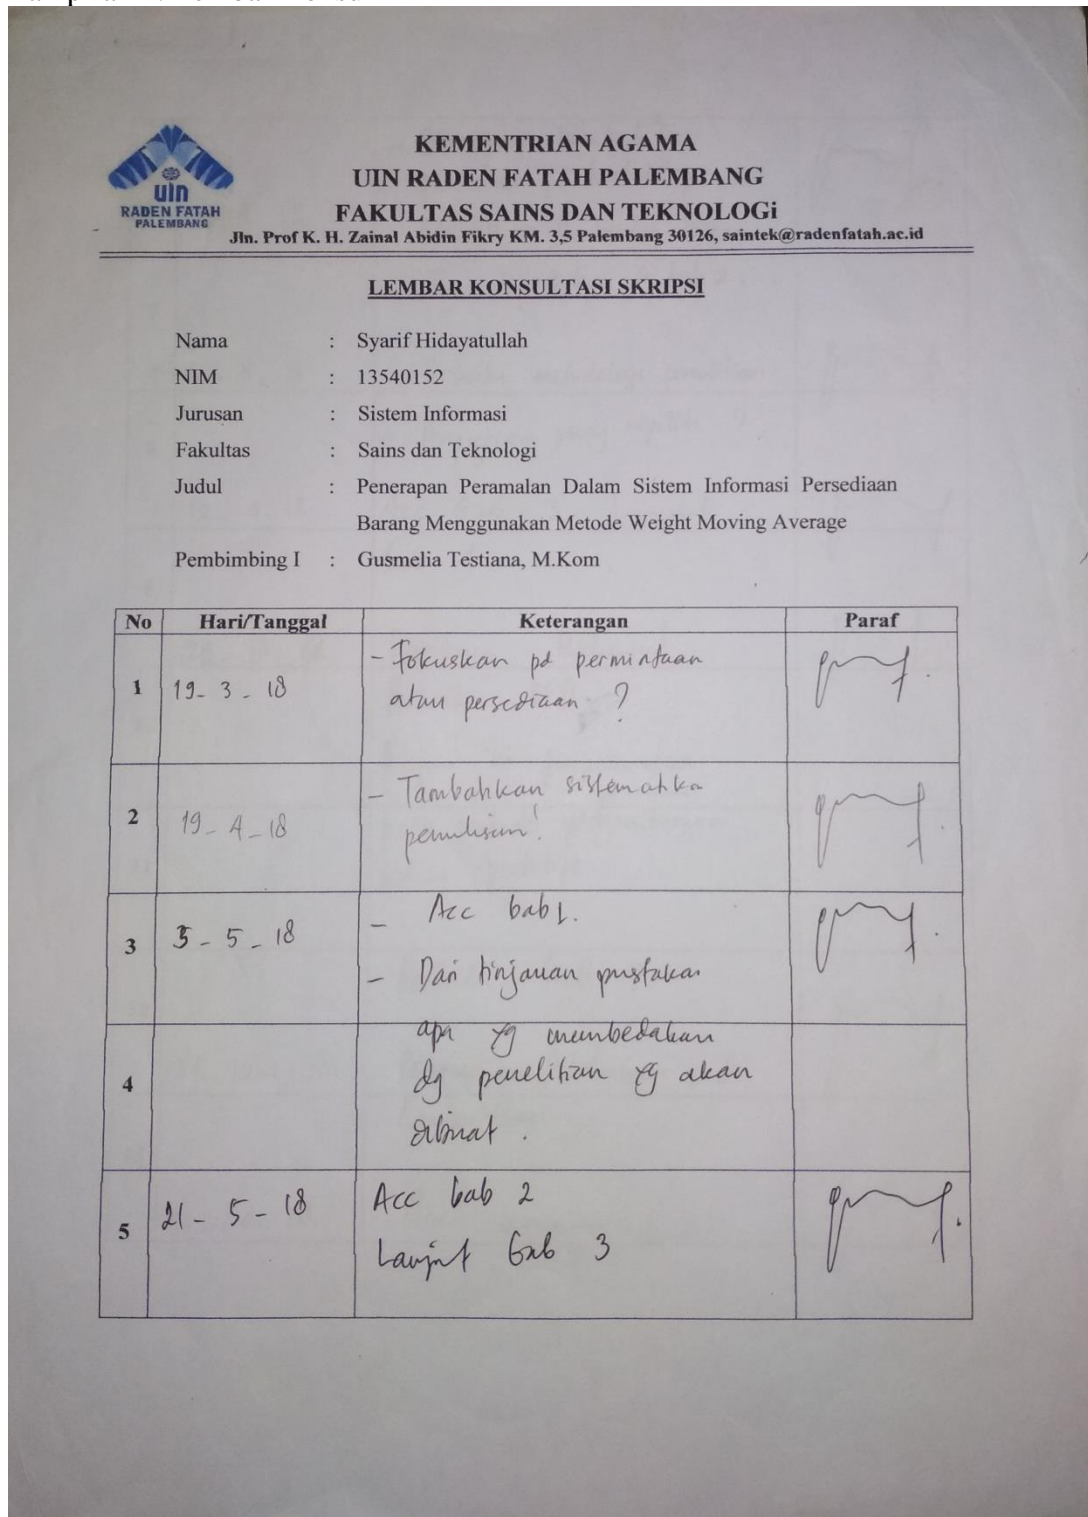 uin
RADEN FATAH
PALEMBANG
KEMENTRIAN AGAMA
UIN RADEN FATAH PALEMBANG
FAKULTAS SAINS DAN TEKNOLOGi
Jln. Prof K. H. Zainal Abidin Fikry KM. 3,5 Palembang 30126, saintek@radenfatah.ac.id
LEMBAR KONSULTASI SKRIPSI
Nama : Syarif Hidayatullah
NIM : 13540152
Jurusan : Sistem Informasi
Fakultas : Sains dan Teknologi
Judul : Penerapan Peramalan Dalam Sistem Informasi Persediaan
Barang Menggunakan Metode Weight Moving Average
Pembimbing I : Gusmelia Testiana, M.Kom
No Hari/Tanggal Keterangan Paraf
1 19-3-18 - Fokuskan pd permintaan
atau persediaan ?
2 19-4-18 - Tambahkan sistematika
penulisan!
3 3-5-18 - Acc bab 1.
- Dari tinjauan pustaka
4 apa yg membedakan
dg penelitian yg akan
dibuat.
5 21-5-18 Acc bab 2
Lanjut bab 3